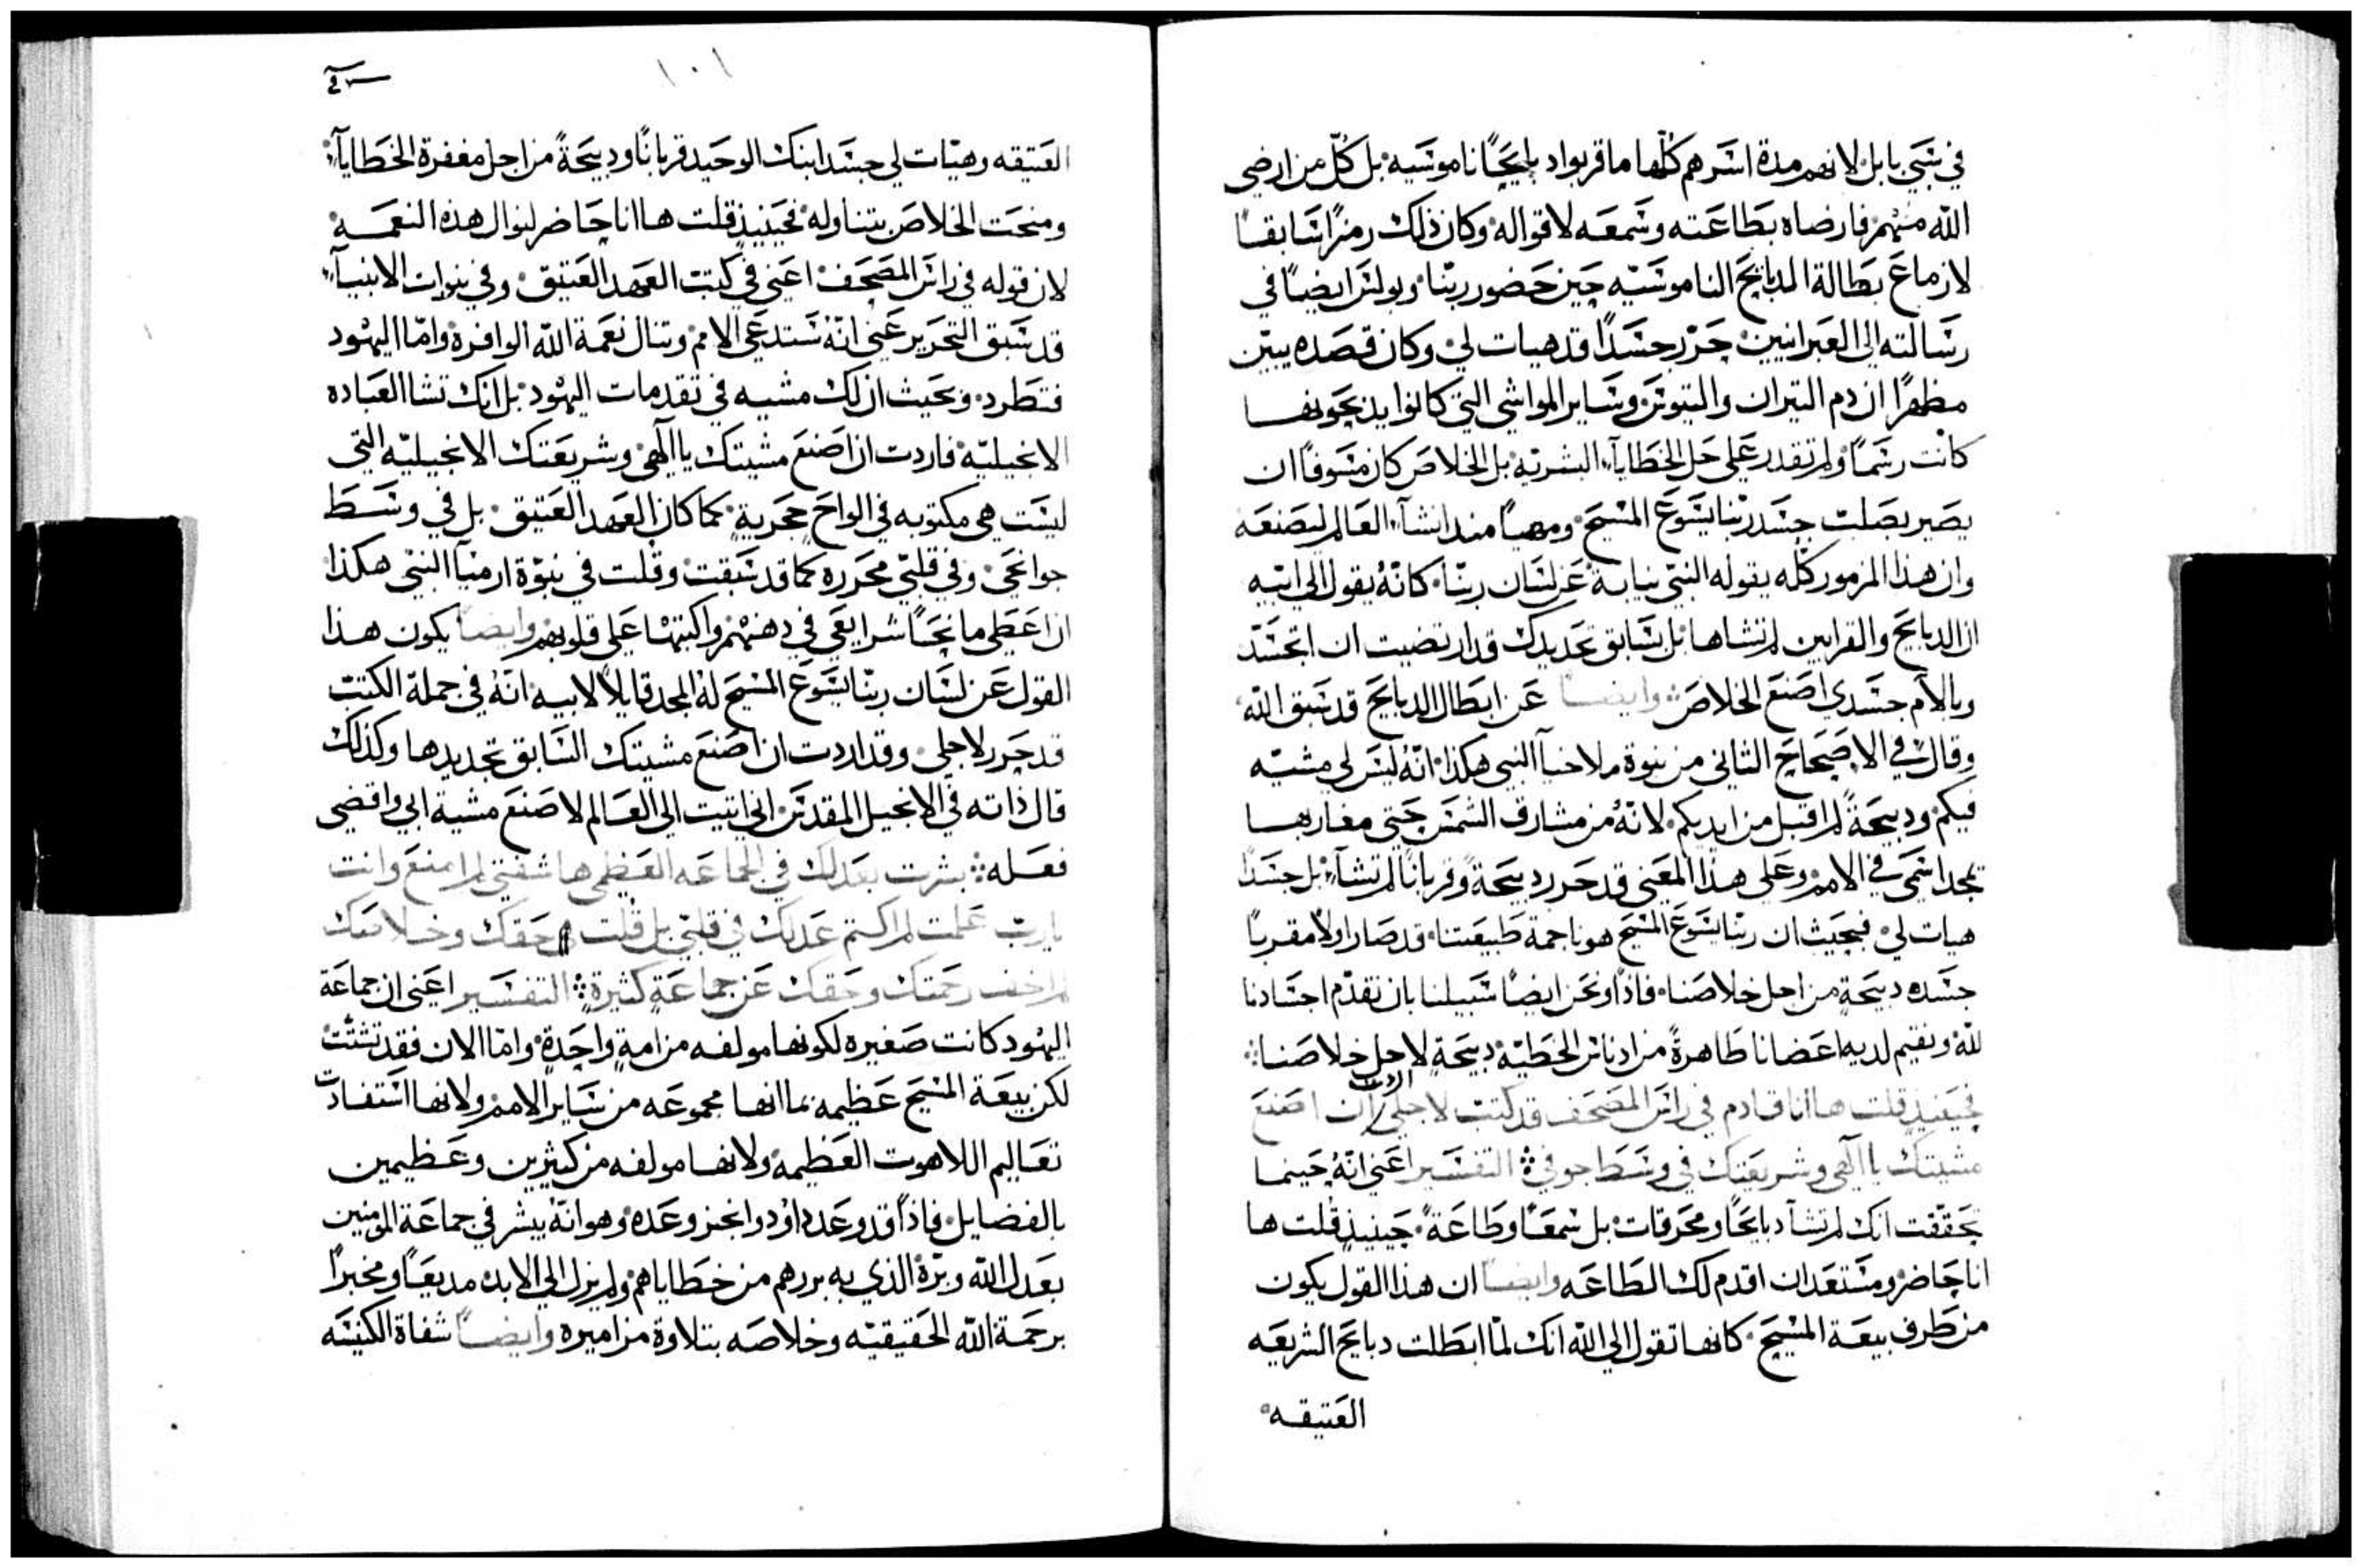 في سبي بابل لانهم مدة اسرهم كلّها ما قربوا دبايحًا ناموسيه بل كلّ من ارضي
الله منهم فارضاه بطاعته وسمعه لاقواله وكان ذلك رمزًا سابقًا
لازماع بطالة الدبايح الناموسيّه حين حضور ربّنا وبولس ايضًا في
رسالته الى العبرانيين حرّر جسدًا قد هيات لي وكان قصده يبيّن
مظهرًا ان دم التيران والتيوس وساير المواشي التي كانوا يذبحونها
كانت رسمًا ولم تقدر على حل الخطايآ البشريّه بل الخلاص كان مسوفًا ان
يصير بصلب جسد ربّنا يسوع المسيح ومهيا مند انشآ العالم ليصنعه
وان هذا المزمور كلّه يقوله النبيّ نيابة عن لسان ربّنا كانّهُ يقول الى ابيه
ان الدبايح والقرابين لم تشاها بل بسابق تحديدك قد ارتضيت ان اتجسّد
وبالام جسدي اصنع الخلاص وايضًا عن ابطال الدبايح قد سبق الله
وقال في الاصحاح الثاني من نبوة ملاخيآ النبي هكذا انّهُ ليس لي مشيّه
فيكم ودبيحةً لم اقبل من ايديكم لانهُ من مشارق الشمس حتى مغاربها
تمجد اسمي في الامم وعلى هذا المعنى قد حرر دبيحةً وقربانًا لم تشآ بل جسدًا
هيات لي فبحيث ان ربّنا يسوع المسيح هو ناجمة طبيعتنا قد صار اولًا مقربًا
جسده دبيحةٍ من اجل خلاصنا فاذًا ونحن ايضًا سبيلنا بان نقدّم اجسادنا
لله ونقيم لديه اعضانا طاهرةً من ادناس الخطيّه دبيحةٍ لاجل خلاصنا
فحينيذٍ قلت ها انا قادم في راس المصحف قد كتب لاجلي ان اصنع
مشيتك يا الهي وشريعتك في وسط جوفي التفسير اعني انّهُ حينما
تحققت انك لم تشآ دبايحًا ومحرقات بل سمعًا وطاعةً حينيذٍ قلت ها
انا حاضر ومستعد ان اقدم لك الطاعه وايضًا ان هذا القول يكون
من طرف بيعة المسيح كانها تقول الى الله انك لمّا ابطلت دبايح الشريعه
العتيقه
١٠١
العتيقه وهيّات لي جسد ابنك الوحيد قربانًا ودبيحةً من اجل مغفرة الخطايآ
ومنحت الخلاص بتناوله فحينيذٍ قلت ها انا حاضر لنوال هذه النعمه
لان قوله في راس المصحف اعني في كتب العهد العتيق وفي نبوات الانبيآ
قد سبق التحرير عني انّهُ ستدعى الامم وتنال نعمة الله الوافرة وامّا اليهود
فتطرد وبحيث ان لك مشيه في تقدمات اليهود بل انك تشا العباده
الانجيليّه فاردت ان اصنع مشيتك يا الهي وشريعتك الانجيليّه التي
ليست هي مكتوبه في الواح حجرية كما كان العهد العتيق بل في وسط
جوانحي وفي قلبي محرره كما قد سبقت وقلت في نبوّة ارميآ النبي هكذا
ان اعطي مانحًا شرايعي في دهنهم واكبتها على قلوبهم وايضًا يكون هذا
القول عن لسان ربّنا يسوع المسيح لهُ المجد قايلًا لابيه انّهُ في جملة الكتب
قد حرر لاجلي وقد اردت ان اصنع مشيتك السابق تحديدها وكذلك
قال ذاته في الانجيل المقدس اني اتيت الى العالم لاصنع مشية ابي واقضي
فعله بشرت بعدلك في الجماعه العظمى ها شفتي لم امنع وانت
يا ربّ علمت لم اكتم عدلك في قلبي بل قلت حقك وخلاصك
لم اخف رحمتك وحقك عن جماعةٍ كثيرةٍ التفسير اعني ان جماعة
اليهود كانت صغيره لكونها مولفه من امةٍ واحدةٍ وامّا الان فقد تشتّت
لكن بيعة المسيح عظيمه بما انها مجموعه من ساير الامم ولانها استفادت
تعاليم اللاهوت العظيمه ولانها مولفه من كثيرين وعظيمين
بالفضايل فاذًا قد وعد داوُد وانجز وعده وهو انّهُ يبشر في جماعة المومنين
بعدل الله وبرّه الذي به بررهم من خطاياهم ولم يزل الى الابد مديعًا ومخبرًا
برحمة الله الحقيقيّه وخلاصه بتلاوة مزاميره وايضًا شفاة الكنيسه